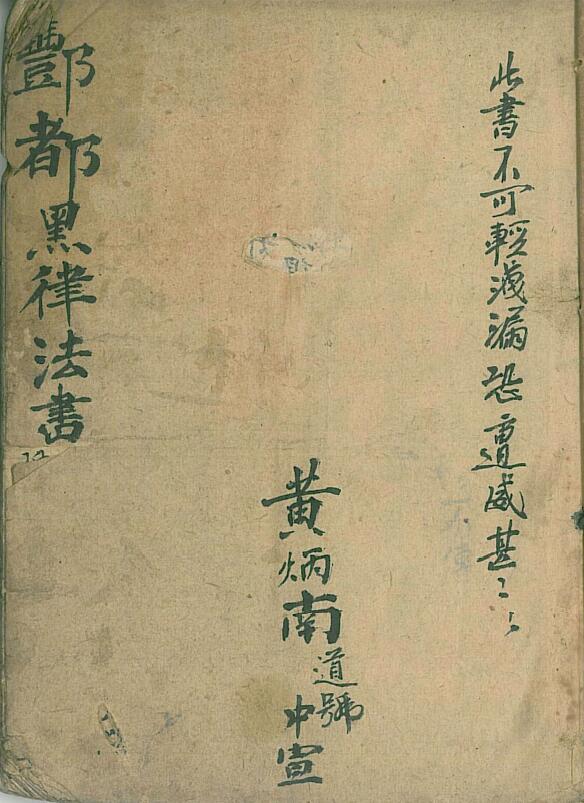 此書不可輕洩漏恐遭滅甚〻
黄炳南
道號
中宣
酆都黑律法書